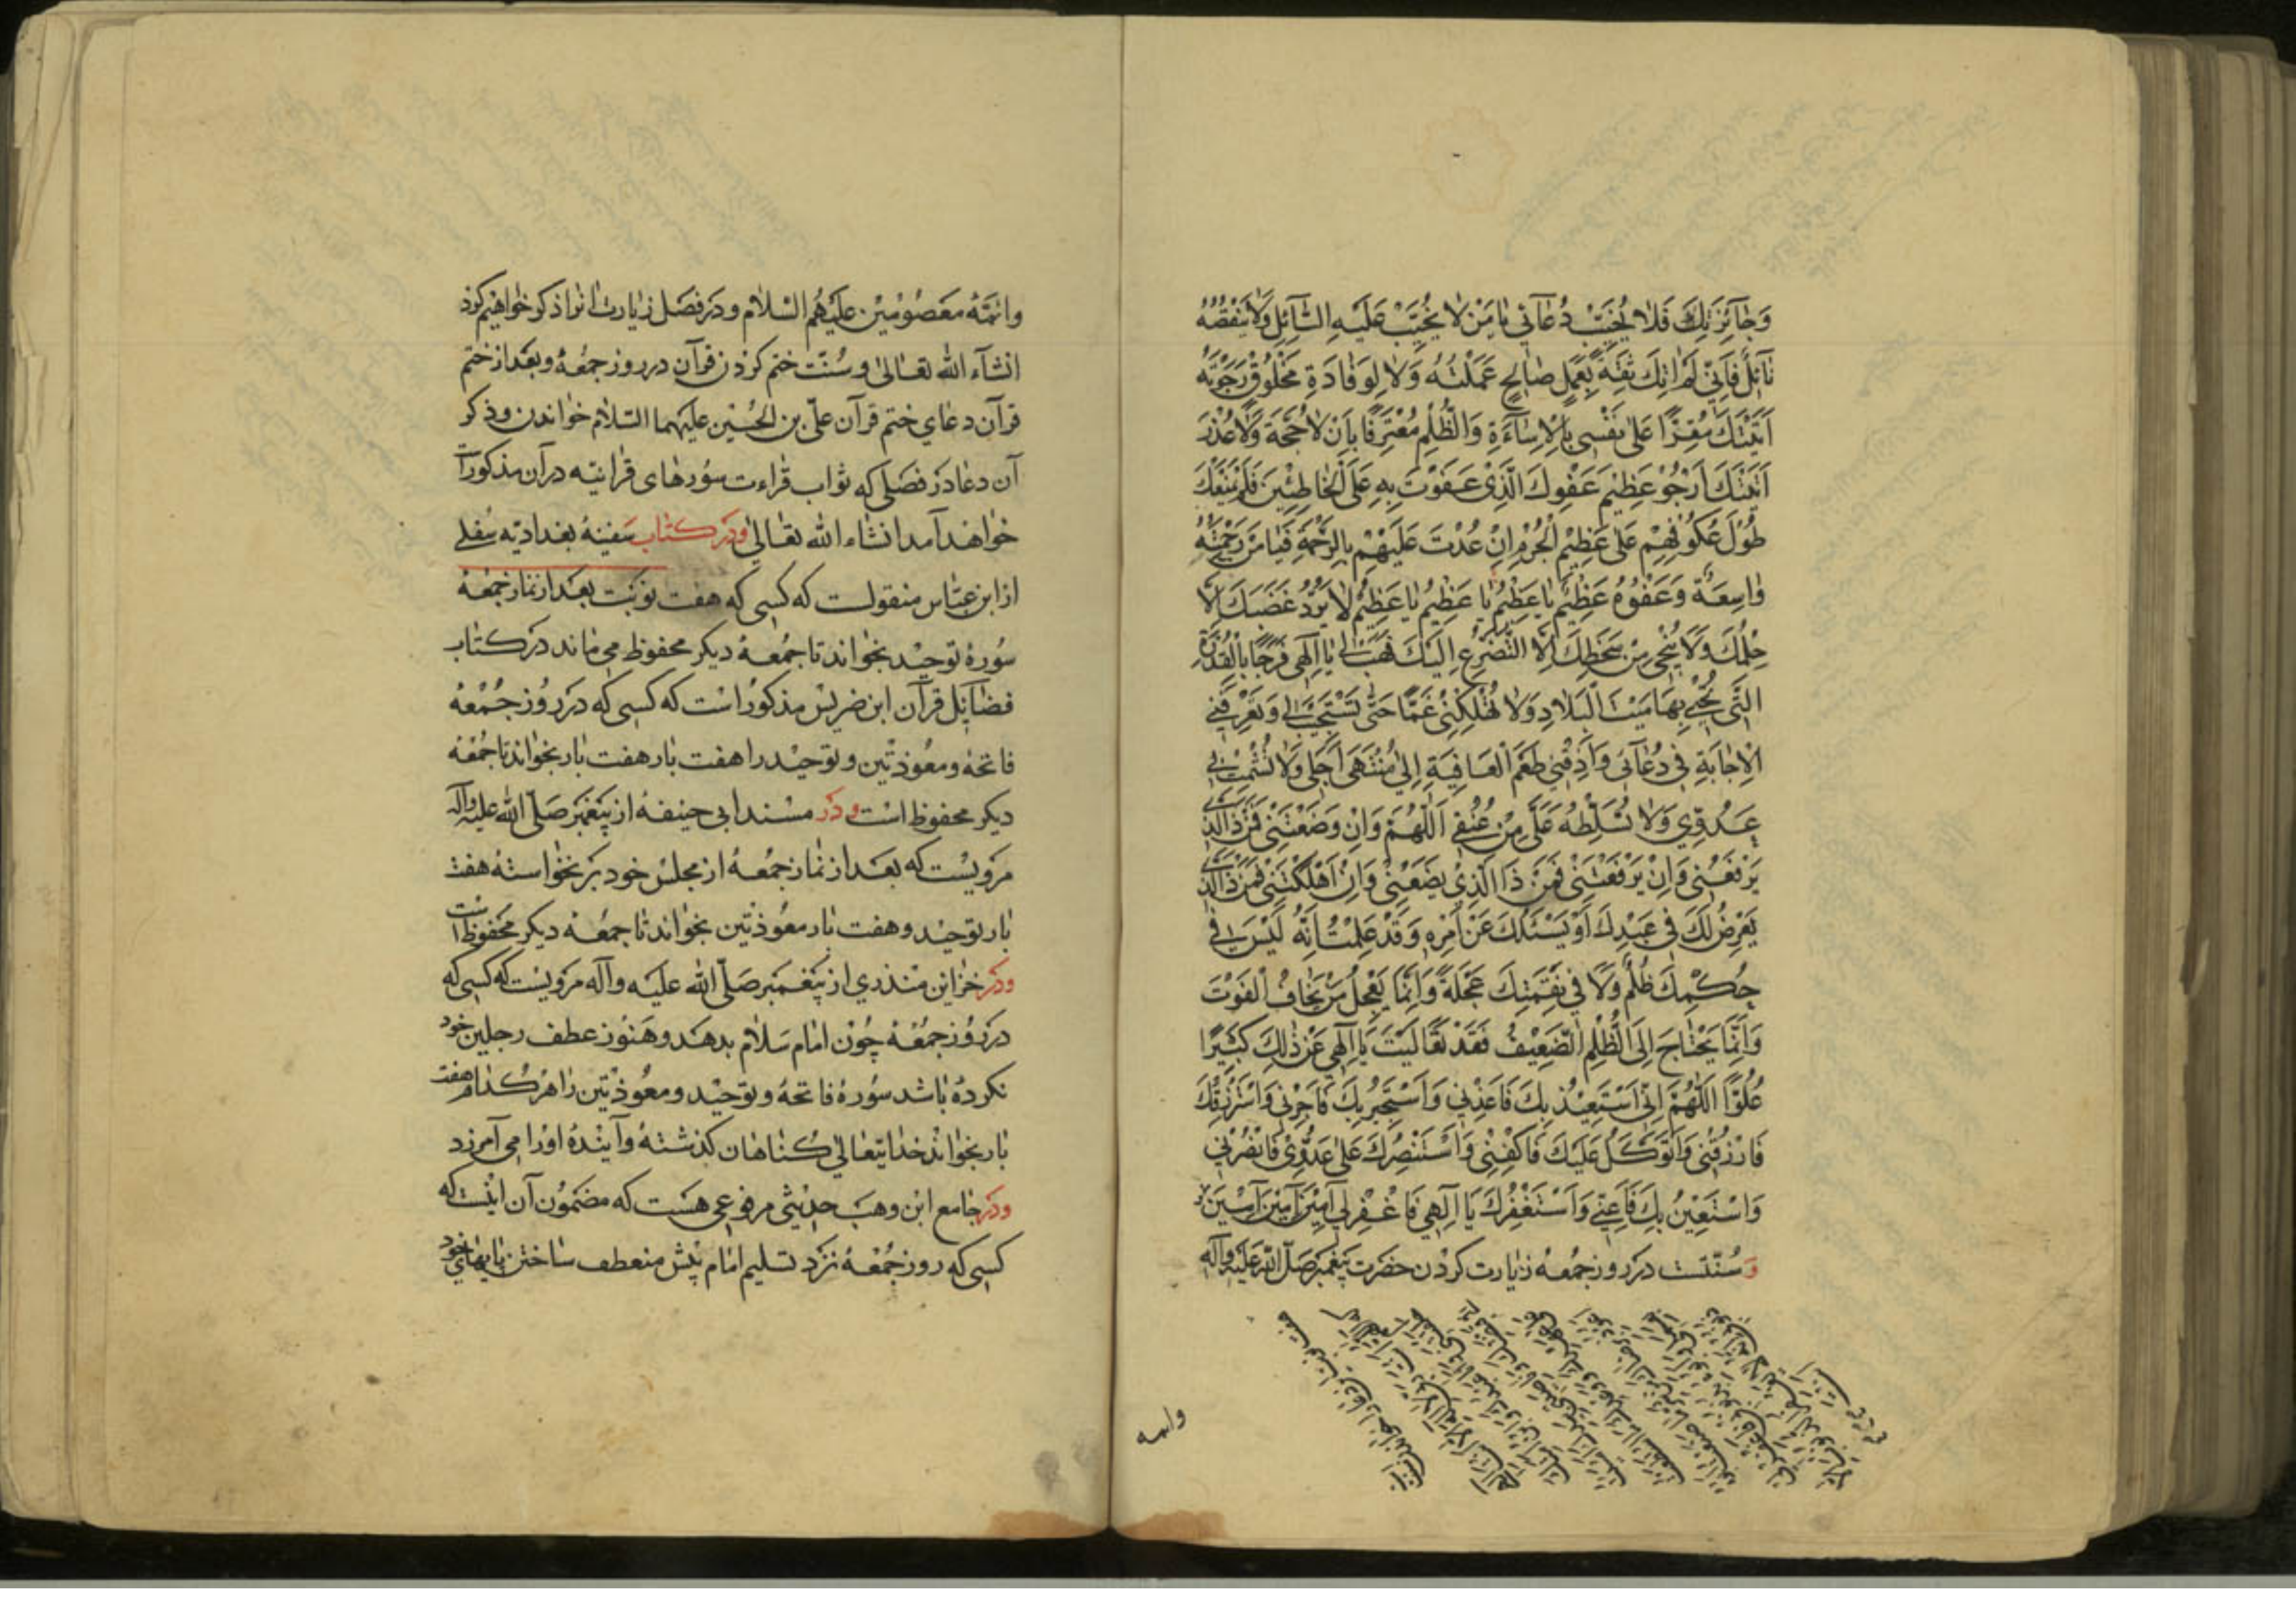 وَجٰآئِزَتِكَ فَلاٰ تُخَيِّبْ دُعٰآئي يٰا مَنْ لاٰ يَخيٖبُ عَلَيْهِ السّٰآئِلِ وَلاٰ يَنْقُصُهُ
نٰآئِلٌ فَاِنّي لَمْ اٰتِكَ ثِقَةً بِعَمَلٍ صٰالِحٍ عَمِلْتُهُ وَلاٰ لِوِفٰادَةِ مَخْلُوقٍ رَجَوْتُهُ
اَتَيْتُكَ مُقِرًّا عَلىٰ نَفْسي بِالْاِسٰاءَةِ وَالظُّلْمِ مُعْتَرِفًا بِاَنْ لاٰ حُجَّةَ وَلاٰ عُذْرَ
اَتَيْتُكَ اَرْجُوْ عَظِيْمَ عَفْوِكَ الَّذِيْ عَفَوْتَ بِهِ عَلَى الْخٰاطِئِيْنَ فَلَمْ يَمْنَعْكَ
طُوْلُ عُكُوْفِهِمْ عَلىٰ عَظِيْمِ الْجُرْمِ اِنْ عُدْتَ عَلَيْهِمْ بِالرَّحْمَةِ فَيٰا مَنْ رَحْمَتُهُ
وٰاسِعَةٌ وَعَفْوُهُ عَظِيْمٌ يٰا عَظِيْمُ يٰا عَظِيْمُ يٰا عَظِيْمُ لاٰ يَرُدُّ غَضَبَكَ اِلاّٰ
حِلْمُكَ وَلاٰ يُنْجِيْ مِنْ سَخَطِكَ اِلاَّ التَّضَرُّعُ اِلَيْكَ فَهَبْ لِيْ يٰا اِلٰهِيْ فَرَجًا بِالْقُدْرَةِ
الَّتِيْ تُحْيِيْ بِهَا مَيْتَ الْبِلاٰدِ وَلاٰ تُهْلِكْنِيْ غَمًّا حَتّٰى تَسْتَجِيْبَ لِيْ وَتُعَرِّفَنِيْ
الْاِجٰابَةَ فِيْ دُعٰآئِيْ وَاَذِقْنِيْ طَعْمَ الْعَافِيَةِ اِلىٰ مُنْتَهىٰ اَجَلِيْ وَلاٰ تُشْمِتْ بِيْ
عَدُوِّيْ وَلاٰ تُسَلِّطْهُ عَلَيَّ مِنْ عُنُقِيْ اَللّٰهُمَّ وَاِنْ وَضَعْتَنِيْ فَمَنْ ذَا الَّذِيْ
يَرْفَعُنِيْ وَاِنْ يَرْفَعْتَنِيْ فَمَنْ ذَا الَّذِيْ يَضَعُنِيْ وَاِنْ اَهْلَكْتَنِيْ فَمَنْ ذَا الَّذِيْ
يَعْرِضُ لَكَ فِيْ عَبْدِكَ اَوْ يَسْئَلُكَ عَنْ اَمْرِهِ وَقَدْ عَلِمْتُ اَنَّهُ لَيْسَ فِيْ
حُكْمِكَ ظُلْمٌ وَلاٰ فِيْ نِقْمَتِكَ عَجَلَةٌ وَاِنَّمٰا يَعْجَلُ مَنْ يَخٰافُ الْفَوْتَ
وَاِنَّمٰا يَحْتٰاجُ اِلَى الظُّلْمِ الضَّعِيْفُ فَقَدْ تَعٰالَيْتَ يٰا اِلٰهِيْ عَنْ ذٰلِكَ كَثِيْرًا
عُلُوًّا اَللّٰهُمَّ اِنِّيْ اَسْتَعِيْذُ بِكَ فَاَعِذْنِيْ وَاَسْتَجِيْرُ بِكَ فَاَجِرْنِيْ وَاَسْتَرْزِقُكَ
فَارْزُقْنِيْ وَاَتَوَكَّلُ عَلَيْكَ فَاكْفِنِيْ وَاَسْتَنْصِرُكَ عَلىٰ عَدُوِّيْ فَانْصُرْنِيْ
وَاَسْتَعِيْنُ بِكَ فَاَعِنِّيْ وَاَسْتَغْفِرُكَ يٰا اِلٰهِيْ فَاغْفِرْ لِيْ آمِيْنَ آمِيْنَ آمِيْنَ
وَسُنّتست در روز جمعه زیارت کردن حضرت پیغمبر صلّی الله علیه وآله
وائمه
وائمّهٔ معصومین علیهم السلام ودر فصل زیارت انرا ذکر خواهیم کرد
انشآء الله تعالی وسنّت ختم کردن قرآن در روز جمعه وبعد از ختم
قرآن دعای ختم قرآن علیّ بن الحسین علیهما السّلام خواندن وذکر
آن دعا در فصلی که ثواب قراءت سورهای قرانیّه در آن مذکورات
خواهند آمد انشاء الله تعالی ودر کتاب سفینهٔ بغدادیّه سفلی
از ابن عبّاس منقولست که کسی که هفت نوبت بعد از نماز جمعه
سورهٔ توحید بخواند تا جمعهٔ دیکر محفوظ می ماند در کتاب
فضایل قرآن ابن ضریس مذکور است که کسی که در روز جمعه
فاتحه ومعوذتین وتوحید را هفت بار هفت بار بخواند تا جمعه
دیکر محفوظ است ودر مسند ابی حنیفه از پیغمبر صلّی الله علیه وآله
مرویست که بعد از نماز جمعه از مجلس خود برنخواسته هفت
بار توحید وهفت بار معوذتین بخواند تا جمعه دیکر محفوظ است
ودر خزاین منذری از پیغمبر صلّی الله علیه وآله مرویست که کسی که
در روز جمعه چون امام سلام بدهد وهنوز عطف رجلین خود
نکرده باشد سورهٔ فاتحه وتوحید ومعوذتین را هر کدام هفت
بار بخواند خدایتعالی کناهان کذشته وآینده اورا می آمرزد
ودر جامع ابن وهب حدیثی مرفوعی هست که مضمون آن اینست که
کسی که روز جمعه نزد تسلیم امام پیش منعطف ساختن پایهای خود